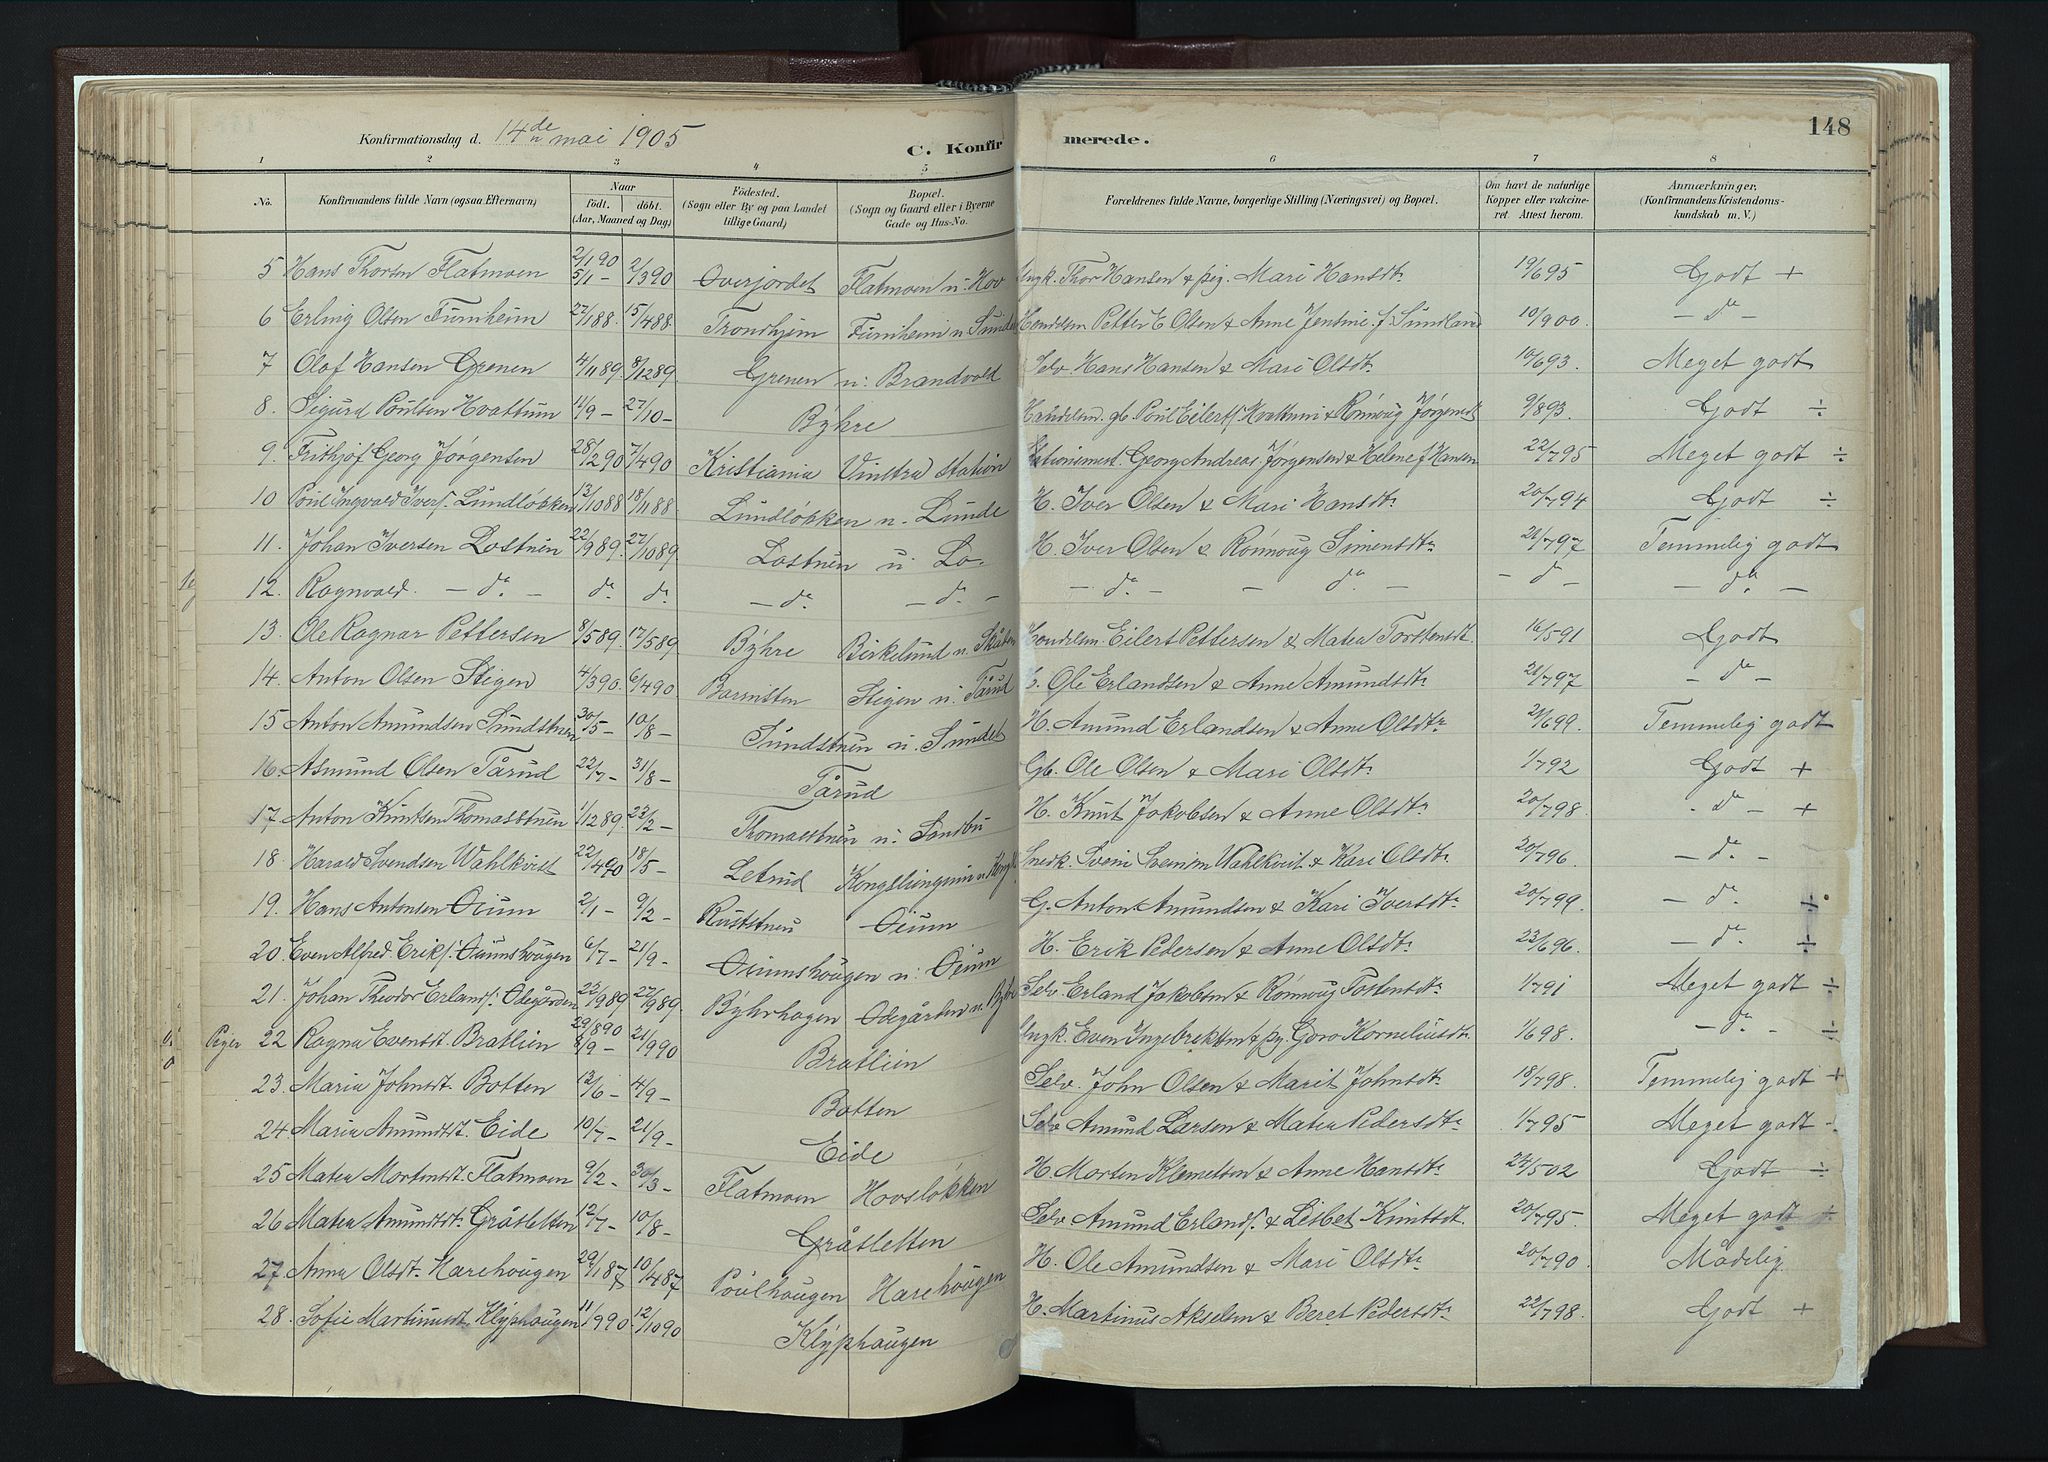 148
Konfirmationsdag d. 14de mai 1905
C. Konfirmerede.
1 2 3 4 5 6 7 8
No. Konfirmandens fulde Navn (ogsaa Efternavn) Naar født. døbt. (Aar, Maaned og Dag) Födested. (Sogn eller By og paa Landet tillige Gaard) Bopæl. (Sogn og Gaard eller i Byerne Gade og Hus-No. Forældrenes fulde Navne, borgerlige Stilling (Næringsvei) og Bopæl. Om havt de naturlige Kopper eller vaccineret. Attest herom. Anmærkninger. (Konfirmandens Kristendomskundskab m. V.)
5 Hans Thorsen Flatmoen 2/1 90 5/1 - 2/3 90 Överjordet Flatmoen u. Hov Ungk. Thor Hansen & pig. Mari Hansdtr 19/6 95 Godt +
6 Erling Olsen Furuheim 27/1 88. 15/4 88. Trondhjem Furuheim u. Sunde Handelsm. Petter E Olsen & Anne Jentine f. Sundland 10/9 00. - do -
7 Olaf Hansen Grenen 4/11 89. 8/12 89. Grenen u. Brandvold Selv. Hans Hansen & Mari Olsdtr 10/6 93. Meget godt
8. Sigurd Poulsen Hvattum 11/9 - 27/10 - Býhre Handelsm. gb. Poul Eilerts. Hvattum & Rønnoug Jørgensdt 9/8 93. Godt ÷
9. Frithjof Georg Jørgensen 28/2 90 7/4 90 Kristiania Vinstra station Stationsmest. Georg Andreas Jørgensen & Helene f. Hansen 22/7 95 Meget godt ÷
10 Poul Ingvald Ivers. Lundløkken 13/10 88 18/11 88 Lundløkken u. Lunde H. Iver Olsen & Mari Hansdtr 20/7 94 Godt ÷
11. Johan Iversen Lostuen 22/9 89. 27/10 89. Lostuen u. Lo. H. Iver Olsen & Rønnoug Simensdtr 21/7 97 Temmelig godt
12. Ragnvald. - do - do do - do - do - - do - - do - - do - - do. -
13. Ole Ragnar Pettersen 8/5 89. 17/5 89 Býhre Birkelund u. Skåten Handelsm. Eilert Pettersen & Mathea Torstensdt. 16/5 91 Godt
14. Anton Olsen Stigen 4/3 90. 6/4 90 Stigen u. Tårud S. Ole Erlandsen & Anne Amundsdtr 21/7 97 - do -
15 Anton Amundsen Sundstuen 30/5 - 10/8 - Sundstuen u. Sundet H. Amund Erlandsen & Anne Olsdtr 21/6 99. Temmelig godt
16. Asmund Olsen Tårud 22/7 - 31/8 - Tårud Gb. Ole Olsen & Mari Olsdtr 1/7 92 Godt +
17. Anton Knutsen Thomasstuen 1/12 89. 23/2 - Thomasstuen u. Sandbu H. Knut Jakobsen & Anne Olsdtr 20/7 98. - do - +
18 Harald Svendsen Wahlkvist 22/4 90 18/5 - Letrud Kongsliengum u. Snedk. Svein Wahlkvist & Kari Olsdtr 20/7 96. - do -
19. Hans Antonsen Öium 2/1 - 9/2 - Ruststuen Öium G. Anton Amundsen & Kari Iversdtr 20/7 99. - do. ÷
20. Even Alfred Eriks. Öiumshougen 6/7 - 21/9 - Öiumshougen u. Öium H. Erik Pedersen & Anne Olsdtr 23/6 96. - do. ÷
21. Johan Theodor Erlands. Ødegården 22/9 89 27/9 89. Býhrhagen Ødegården u. Býhre Selv. Erland Jakobsen & Rønnoug Tostensdtr 1/7 91 Meget godt ÷
Piger 22 Ragna Evensdt. Bratlien 29/8 90 8/9 - 21/9 90 Bratlien Ungk. Even Ingebrektsen & pg. Goro Korneliusdtr 1/6 98. - do - ÷
23. Maria Johnsdt. Botten 13/6 - 14/9 - Botten Selv. John Olsen & Marit Johnsdtr 18/7 98. Temmelig godt +
24. Maria Amundsdt. Eide 10/7 - 21/9 - Eide Selv Amund Larsen & Matea Pedersdtr 1/7 95 Meget godt -
25 Matea Mortensdt. Flatmoen 9/2 - 30/3 - Flatmoen Hovsløkken H. Morten Klemetsen & Anne Hansdtr 24/5 02 Godt ÷
26 Matea Amundsdtr Gråsletten 12/7 - 10/8 - Gråsletten Selv Amund Erlands. & Lisbet Knutsdt. 20/7 95. Meget godt ÷
27. Anna Olsdt. Harehougen 29/1 87 10/4 87 Poulhougen Harehougen H. Ole Amundsen & Mari Olsdtr 20/7 90. Mådelig
28. Sofie Martinusdt. Klýphaugen 11/9 90. 12/10 90 Klýphaugen H. Martinus Akselsen & Beret Pedersdtr 22/7 98. Godt +